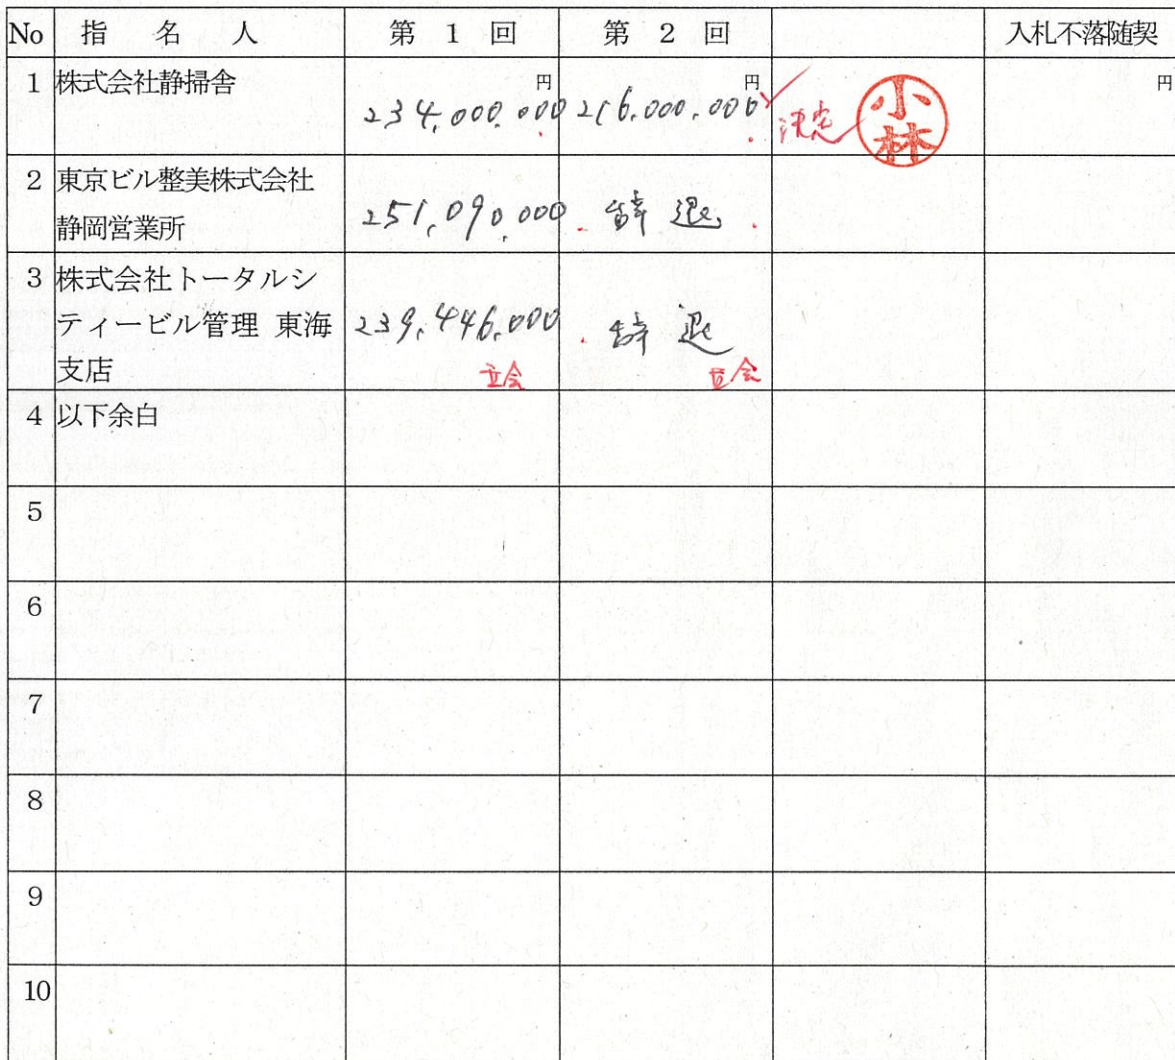 No 指名人 第1回 第2回 入札不落随契
1 株式会社静掃舎 円 234,000,000 円 216,000,000 決定 小林 円
2 東京ビル整美株式会社
静岡営業所 251,090,000 辞退
3 株式会社トータルシ
ティービル管理 東海 239,446,000 辞退
支店 立会 立会
4 以下余白
5
6
7
8
9
10